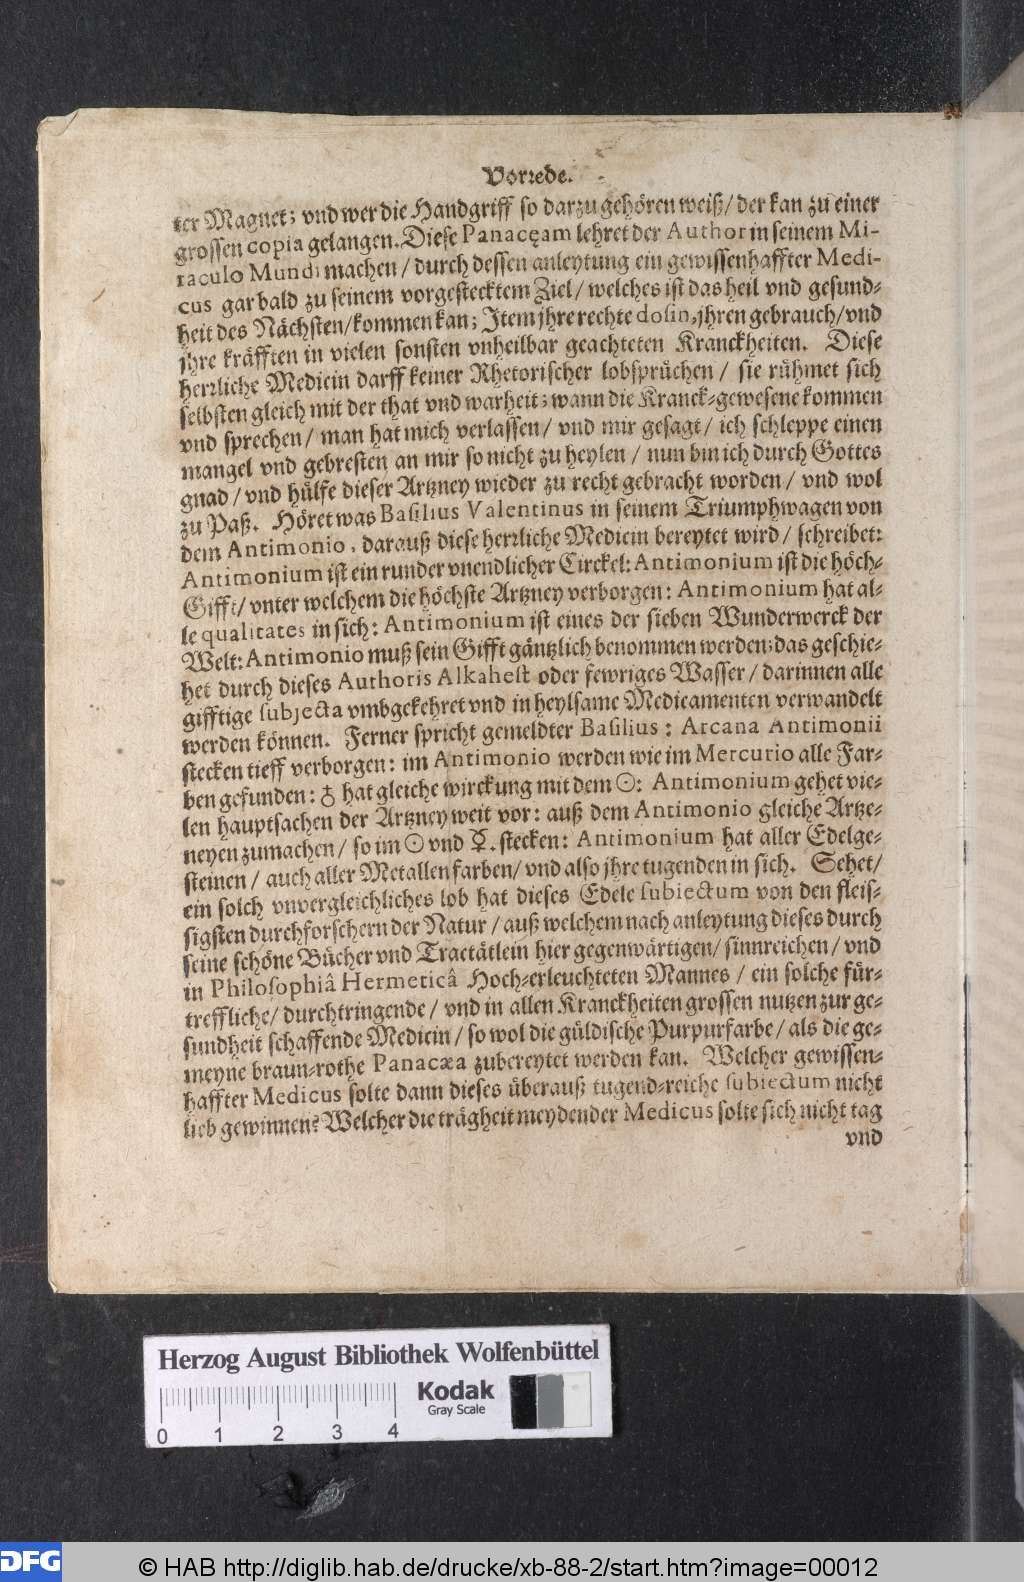 Vorrede.
ter Magnet; vnd wer die Handgriff so darzu gehören weiß/ der kan zu einer
grossen copia gelangen. Diese Panacęam lehret der Author in seinem Mi-
raculo Mundi machen/ durch dessen anleytung ein gewissenhaffter Medi-
cus gar bald zu seinem vorgestecktem Ziel/ welches ist das heil vnd gesund-
heit des Nächsten/kommen kan; Item jhre rechte dosin, jhren gebrauch/vnd
jhre kräfften in vielen sonsten vnheilbar geachteten Kranckheiten. Diese
herrliche Medicin darff keiner Rhetorischer lobsprüchen/ sie rühmet sich
selbsten gleich mit der that vnd warheit; wann die Kranck-gewesene kommen
vnd sprechen/ man hat mich verlassen/ vnd mir gesagt/ ich schleppe einen
mangel vnd gebresten an mir so nicht zu heylen/ nun bin ich durch Gottes
gnad/ vnd hülfe dieser Artzney wieder zu recht gebracht worden/ vnd wol
zu Paß. Höret was Basilius Valentinus in seinem Triumphwagen von
dem Antimonio, darauß diese herrliche Medicin bereytet wird/ schreibet:
Antimonium ist ein runder vnendlicher Circkel: Antimonium ist die höch-
Gifft/ vnter welchem die höchste Artzney verborgen: Antimonium hat al-
le qualitates in sich: Antimonium ist eines der sieben Wunderwerck der
Welt: Antimonio muß sein Gifft gäntzlich benommen werden; das geschie-
het durch dieses Authoris Alkahest oder fewriges Wasser/ darinnen alle
gifftige subjecta vmbgekehret vnd in heylsame Medicamenten verwandelt
werden können. Ferner spricht gemeldter Basilius: Arcana Antimonii
stecken tieff verborgen: im Antimonio werden wie im Mercurio alle Far-
ben gefunden: ♁ hat gleiche wirckung mit dem ☉: Antimonium gehet vie-
len hauptsachen der Artzney weit vor: auß dem Antimonio gleiche Artze-
neyen zumachen/ so im ☉ vnd ☿. stecken: Antimonium hat aller Edelge-
steinen/ auch aller Metallen farben/ vnd also jhre tugenden in sich. Sehet/
ein solch vnvergleichliches lob hat dieses Edele subiectum von den fleis-
sigsten durchforschern der Natur/ auß welchem nach anleytung dieses durch
seine schöne Bücher vnd Tractätlein hier gegenwärtigen/ sinnreichen/ vnd
in Philosophiâ Hermeticâ Hoch-erleuchteten Mannes/ ein solche für-
treffliche/ durchtringende/ vnd in allen Kranckheiten grossen nutzen zur ge-
sundheit schaffende Medicin/ so wol die güldische Purpurfarbe/ als die ge-
meyne braun-rothe Panacæa zubereytet werden kan. Welcher gewissen-
haffter Medicus solte dann dieses überauß tugend-reiche subiectum nicht
lieb gewinnen? Welcher die trägheit meydender Medicus solte sich nicht tag
vnd
Herzog August Bibliothek Wolfenbüttel
Kodak
Gray Scale
0 1 2 3 4
DFG
© HAB http://diglib.hab.de/drucke/xb-88-2/start.htm?image=00012